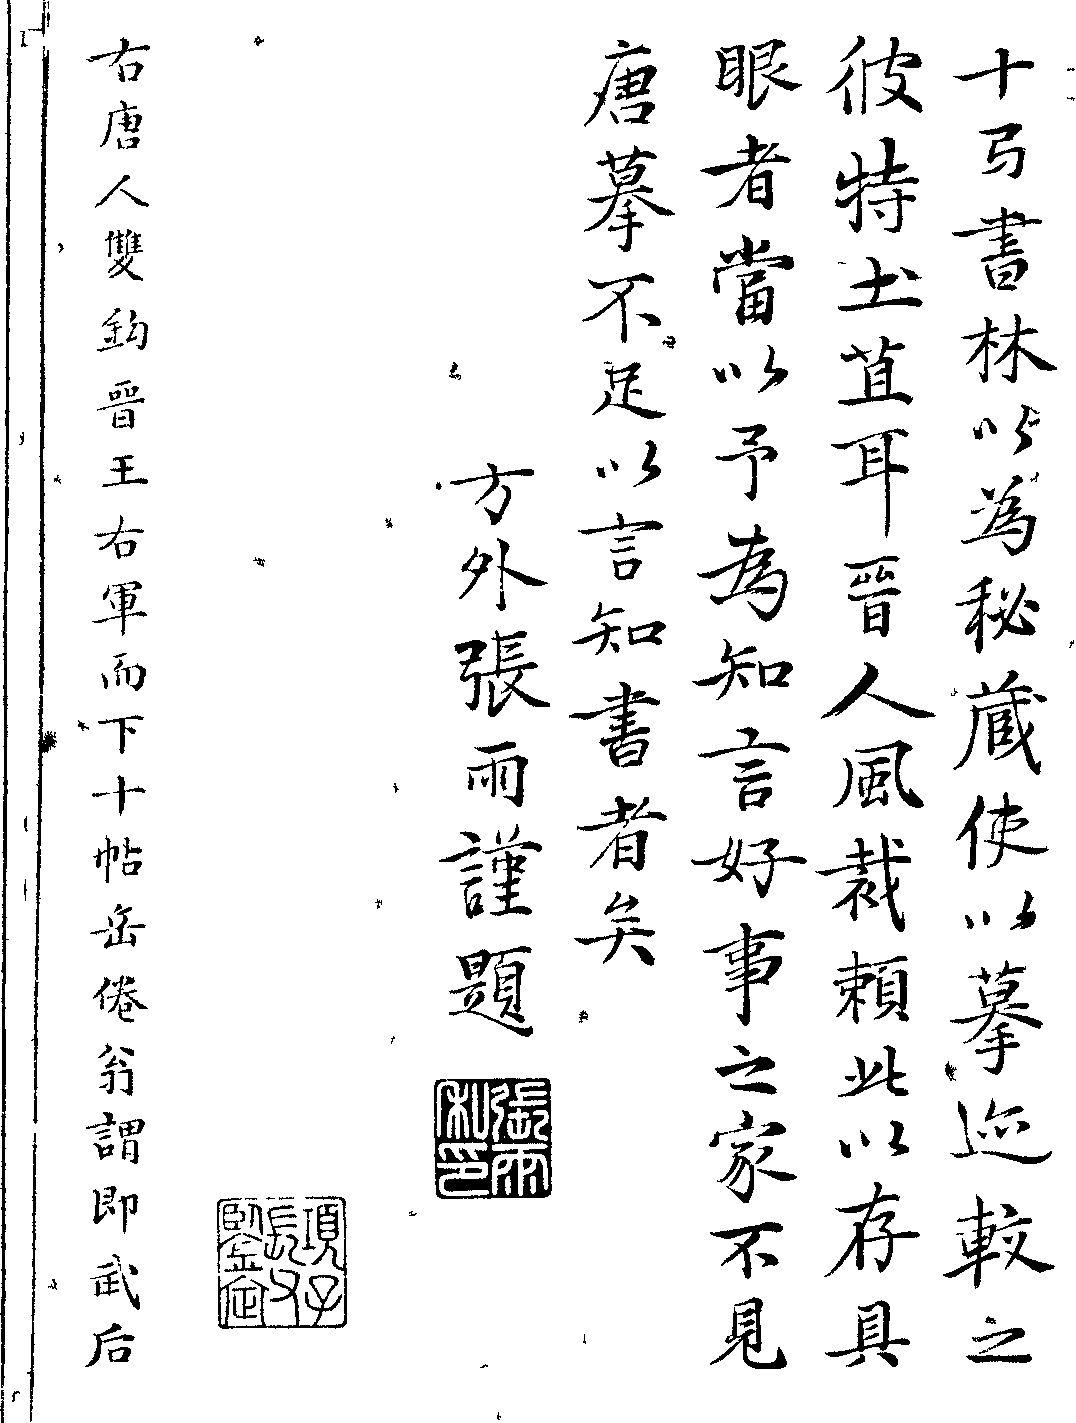 十弓書林以為秘蔵使以摹迹較之
彼特土苴耳晉人風裁頼此以存具
眼者當以予為知言好事之家不見
唐摹不足以言知書者矣
方外張雨謹題
張雨私印
項子長父鑒定
右唐人雙鈎晉王右軍而下十帖岳倦翁謂即武后